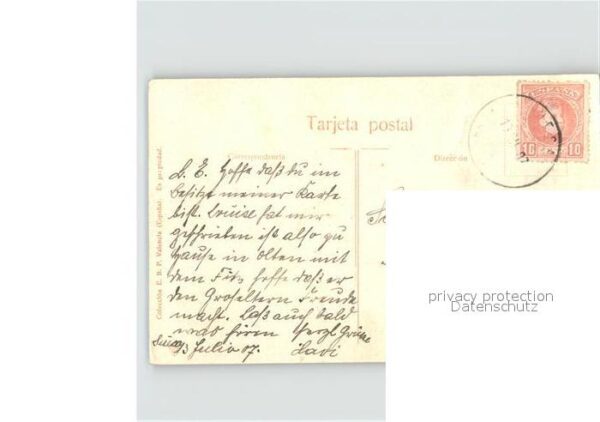 Tarjeta postal
Correspondencia
Dirección
Colección E. B. P. Valencia (España). Es propiedad.
ESPAÑA
10 CENTS 10
L. E. Hoffe daß du im
besitze meiner Karte
bist. Louise hat mir
geschrieben ist also zu
Hause in Olten mit
dem Fitz hoffe daß er
den Großeltern Freude
macht. Laß auch bald
was hören Herzl Grüße
13 Julio 07.
privacy protection
Datenschutz